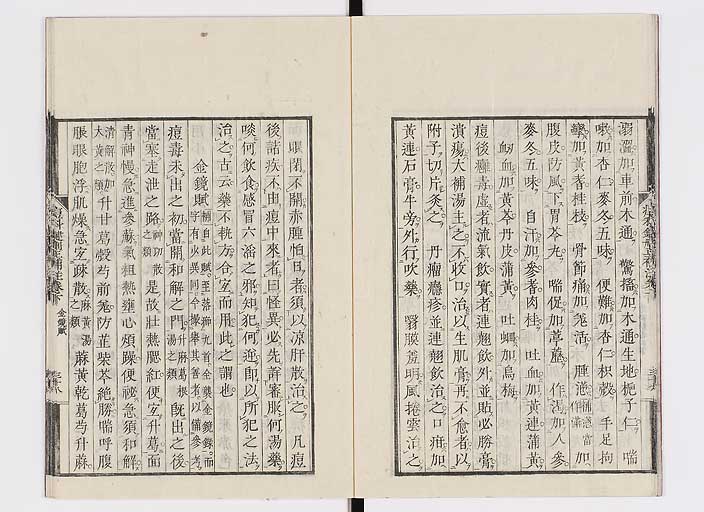 溺澁加車前木通　驚搐加木通生地梔子仁　喘
嗽加杏仁麥冬五味　便難加杏仁枳殼　手足拘
攣加黃耆桂枝　骨節痛加羗活　腫
腹皮防風下胃苓丸　喘促加葶藶　作渇加人參
麥冬五味　自汗加參耆肉桂　吐血加黃連蒲黃
衂血加黃芩丹皮蒲黃　吐蛔加烏梅
痘後癰毒虛者流氣飲實者連翹飲外並貼必勝膏
潰瘍大補湯主之不收口治以生肌膏再不愈者以
附子切片灸之　丹瘤癮疹並連翹飲治之口疳加
黃連石膏牛旁外行吹藥　翳膜羞明風捲雲治之
眼閉不開赤腫怕日者須以凉肝散治之　凡痘
後諸疾不由痘中來者曰怪異必先詳審服何湯藥
啖何飲食感冒六淫之邪知犯何逆即以所犯之法
治之古云藥不執方合宜而用此之謂也
金鏡賦
痘毒未出之初當開和解之門升麻葛根湯之類既出之後
當塞走泄之路神功散之類是故壯熱腮紅便宜升葛面
青神慢急進參蘇氣粗熱壅心煩躁便祕急須和解
清解散加大黃之類升甘葛殼芍前羗防芷柴芩絶勝喘呼腹
脹眼胞浮肌燥急宜疎散麻黃湯之類蔴黃乾葛芍升蔴
金鏡賦